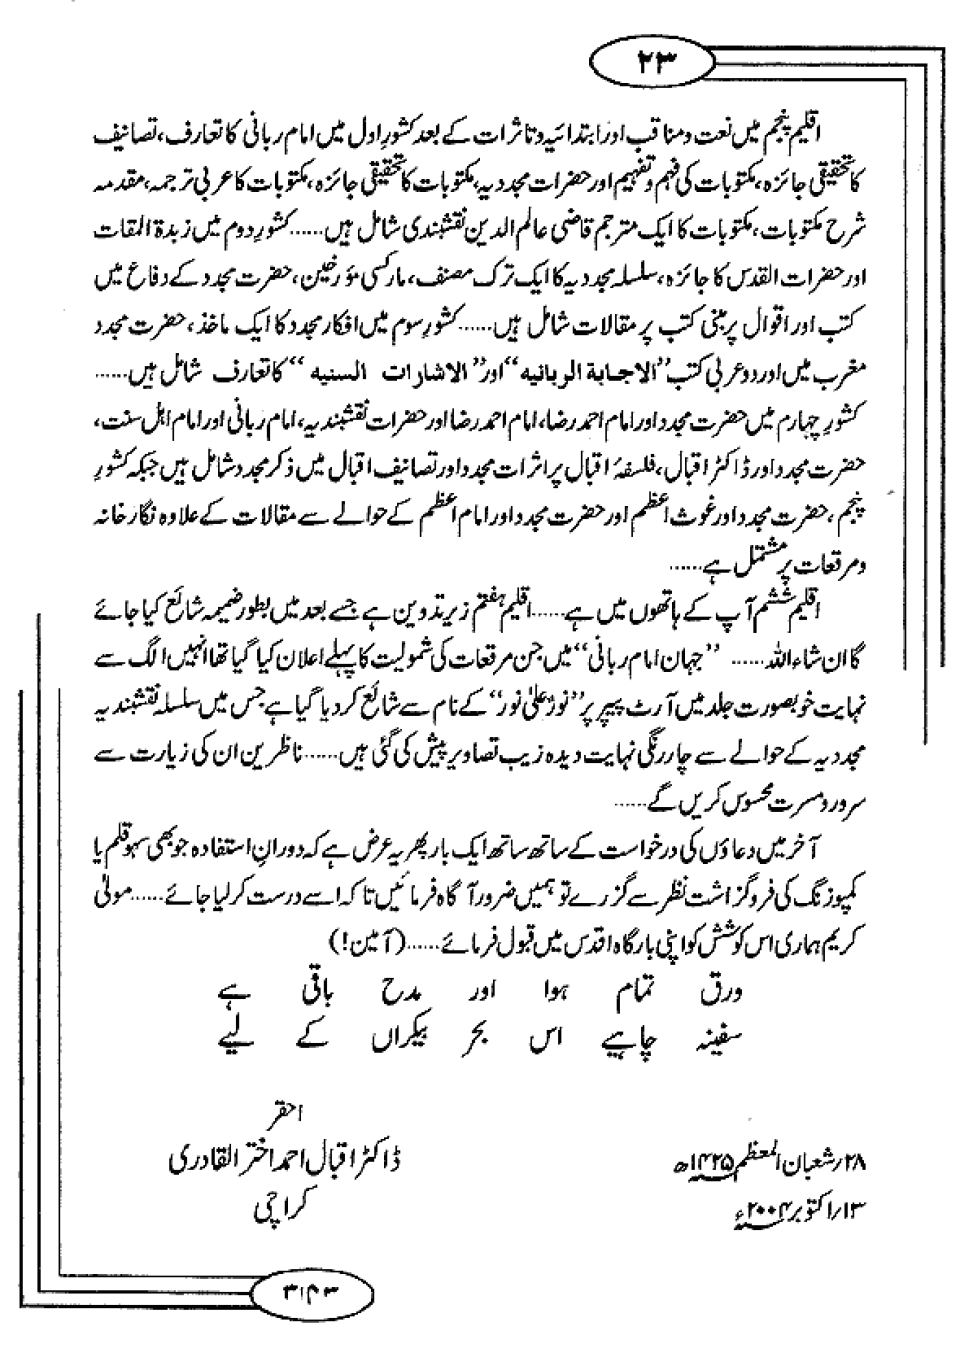 ۲۳
اقلیم پنجم میں نعت ومناقب اور ابتدائیہ وتاثرات کے بعد کشورِ اول میں امام ربانی کا تعارف، تصانیف
کا تحقیقی جائزہ، مکتوبات کی فہم وتفہیم اور حضرات مجددیہ، مکتوبات کا تحقیقی جائزہ، مکتوبات کا عربی ترجمہ، مقدمہ
شرح مکتوبات، مکتوبات کا ایک مترجم قاضی عالم الدین نقشبندی شامل ہیں......کشورِ دوم میں زبدۃ المقات
اور حضرات القدس کا جائزہ، سلسلہ مجددیہ کا ایک ترک مصنف، مارکسی مؤرخین، حضرت مجدد کے دفاع میں
کتب اور اقوال پر مبنی کتب پر مقالات شامل ہیں......کشورِ سوم میں افکار مجدد کا ایک ماخذ، حضرت مجدد
مغرب میں اور دو عربی کتب ”الاجابة الربانیه“ اور ”الاشارات السنیه“ کا تعارف شامل ہیں......
کشورِ چہارم میں حضرت مجدد اور امام احمد رضا، امام احمد رضا اور حضرات نقشبندیہ، امام ربانی اور امام اہل سنت،
حضرت مجدد اور ڈاکٹر اقبال، فلسفۂ اقبال پر اثرات مجدد اور تصانیف اقبال میں ذکر مجدد شامل ہیں جبکہ کشورِ
پنجم، حضرت مجدد اور غوث اعظم اور حضرت مجدد اور امام اعظم کے حوالے سے مقالات کے علاوہ نگار خانہ
ومرقعات پر مشتمل ہے......
اقلیم ششم آپ کے ہاتھوں میں ہے......اقلیم ہفتم زیر تدوین ہے جسے بعد میں بطور ضمیمہ شائع کیا جائے
گا ان شاء اللہ...... ”جہان امام ربانی“ میں جن مرقعات کی شمولیت کا پہلے اعلان کیا گیا تھا انہیں الگ سے
نہایت خوبصورت جلد میں آرٹ پیپر پر ”نورٌ علیٰ نور“ کے نام سے شائع کر دیا گیا ہے جس میں سلسلہ نقشبندیہ
مجددیہ کے حوالے سے چار رنگی نہایت دیدہ زیب تصاویر پیش کی گئی ہیں......ناظرین ان کی زیارت سے
سرور ومسرت محسوس کریں گے......
آخر میں دعاؤں کی درخواست کے ساتھ ساتھ ایک بار پھر یہ عرض ہے کہ دورانِ استفادہ جو بھی سہو قلم یا
کمپوزنگ کی فروگزاشت نظر سے گزرے تو ہمیں ضرور آگاہ فرمائیں تاکہ اسے درست کر لیا جائے......مولیٰ
کریم ہماری اس کوشش کو اپنی بارگاہ اقدس میں قبول فرمائے......(آمین!)
ورق تمام ہوا اور مدح باقی ہے
سفینہ چاہیے اس بحر بیکراں کے لیے
احقر
۲۸/شعبان المعظم ۱۴۲۵ھ ڈاکٹر اقبال احمد اختر القادری
۱۳/اکتوبر ۲۰۰۴ء کراچی
۳۱۴۳